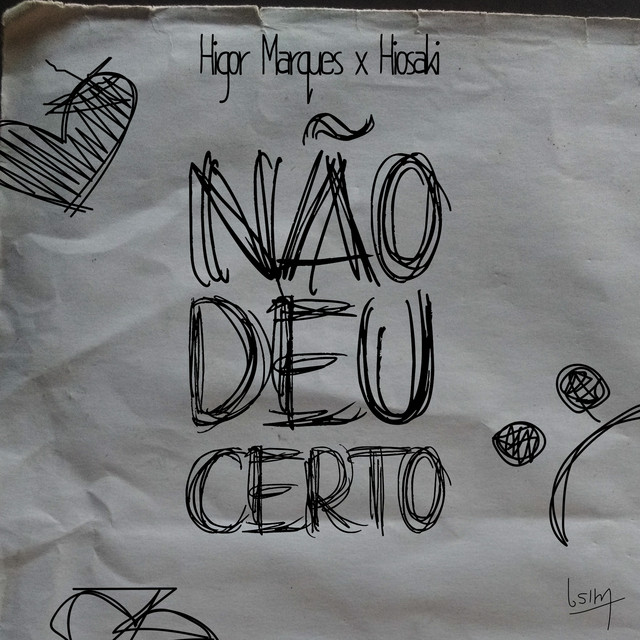 Higor Marques x Hiosaki
NÃO
DEU
CERTO